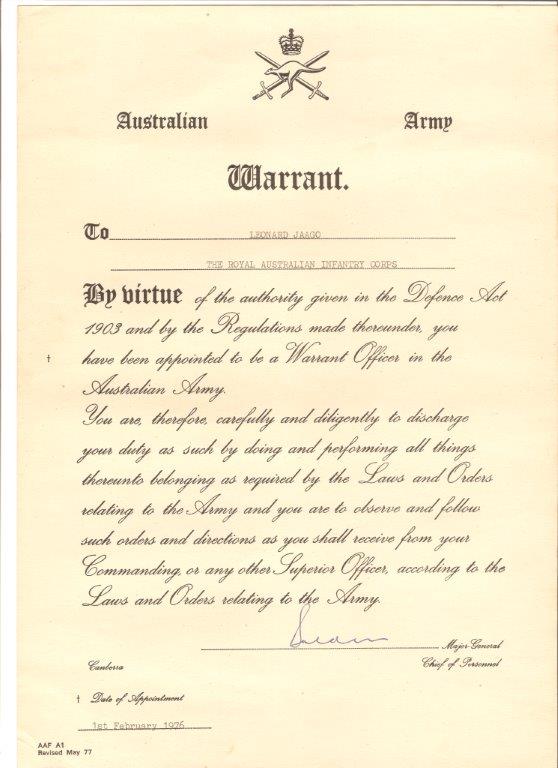 Australian Army
Warrant.
To LEONARD JAAGO
THE ROYAL AUSTRALIAN INFANTRY CORPS
By virtue of the authority given in the Defence Act
1903 and by the Regulations made thereunder, you
† have been appointed to be a Warrant Officer in the
Australian Army.
You are, therefore, carefully and diligently to discharge
your duty as such by doing and performing all things
thereunto belonging as required by the Laws and Orders
relating to the Army and you are to observe and follow
such orders and directions as you shall receive from your
Commanding, or any other Superior Officer, according to the
Laws and Orders relating to the Army.
Major-General
Canberra Chief of Personnel
† Date of Appointment
1st February 1976
AAF A1
Revised May 77